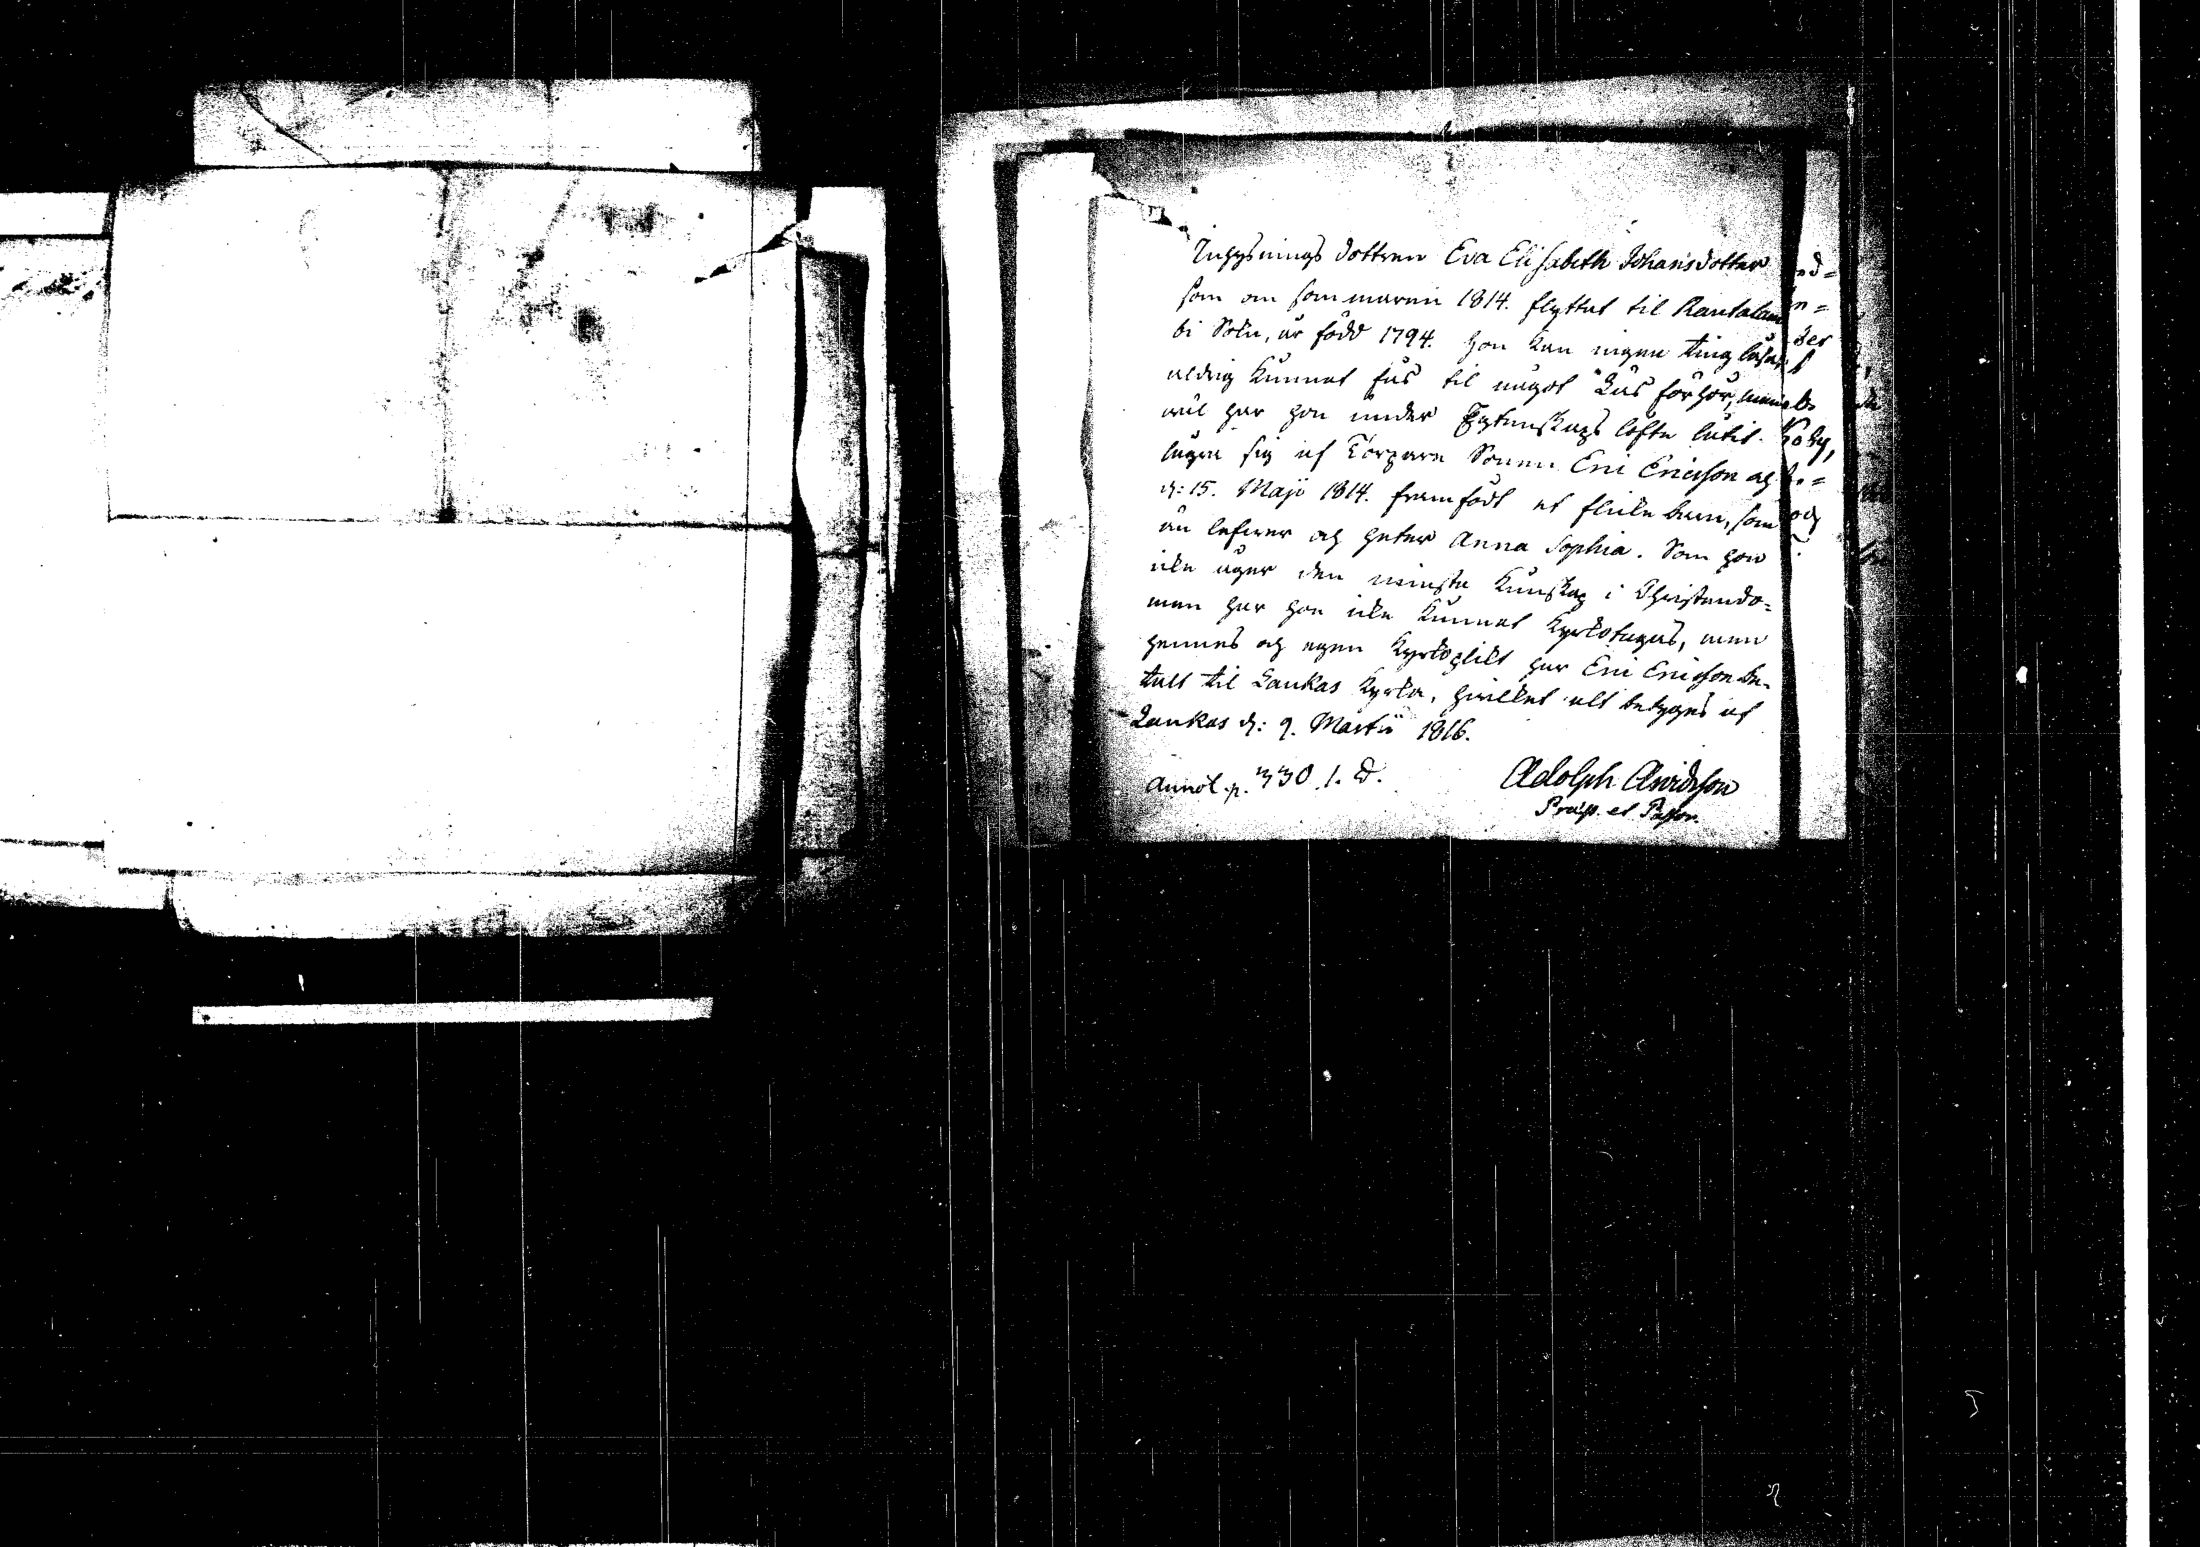 Inhysnings dottren Eva Elisabeth Johansdotter
som om sommaren 1814. flyttat til Rautalam
bi Sokn, är född 1794. hon kan ingen ting läsa,
aldrig kunnat fås til något Läs förhör,
väl har hon under Ægtenskaps löfte låtit
lägra sig af Torpare Sonen Eric Ericsson och
d: 15. Maji 1814. framfödt et flicke barn, som
än lefver och heter Anna Sophia. Som hon
icke äger den minsta Kunskap i Christendo=
men har hon icke kunnat Kyrkotagas, men
hennes och egen Kyrkoplikt har Eric Ericsson be-
talt til Laukas Kyrka, hvilket alt betygas af
Laukas d: 9. Martii 1816.
Annot. p. 330. l. D.
Adolph Arvidsson
Præp. et Pastor.